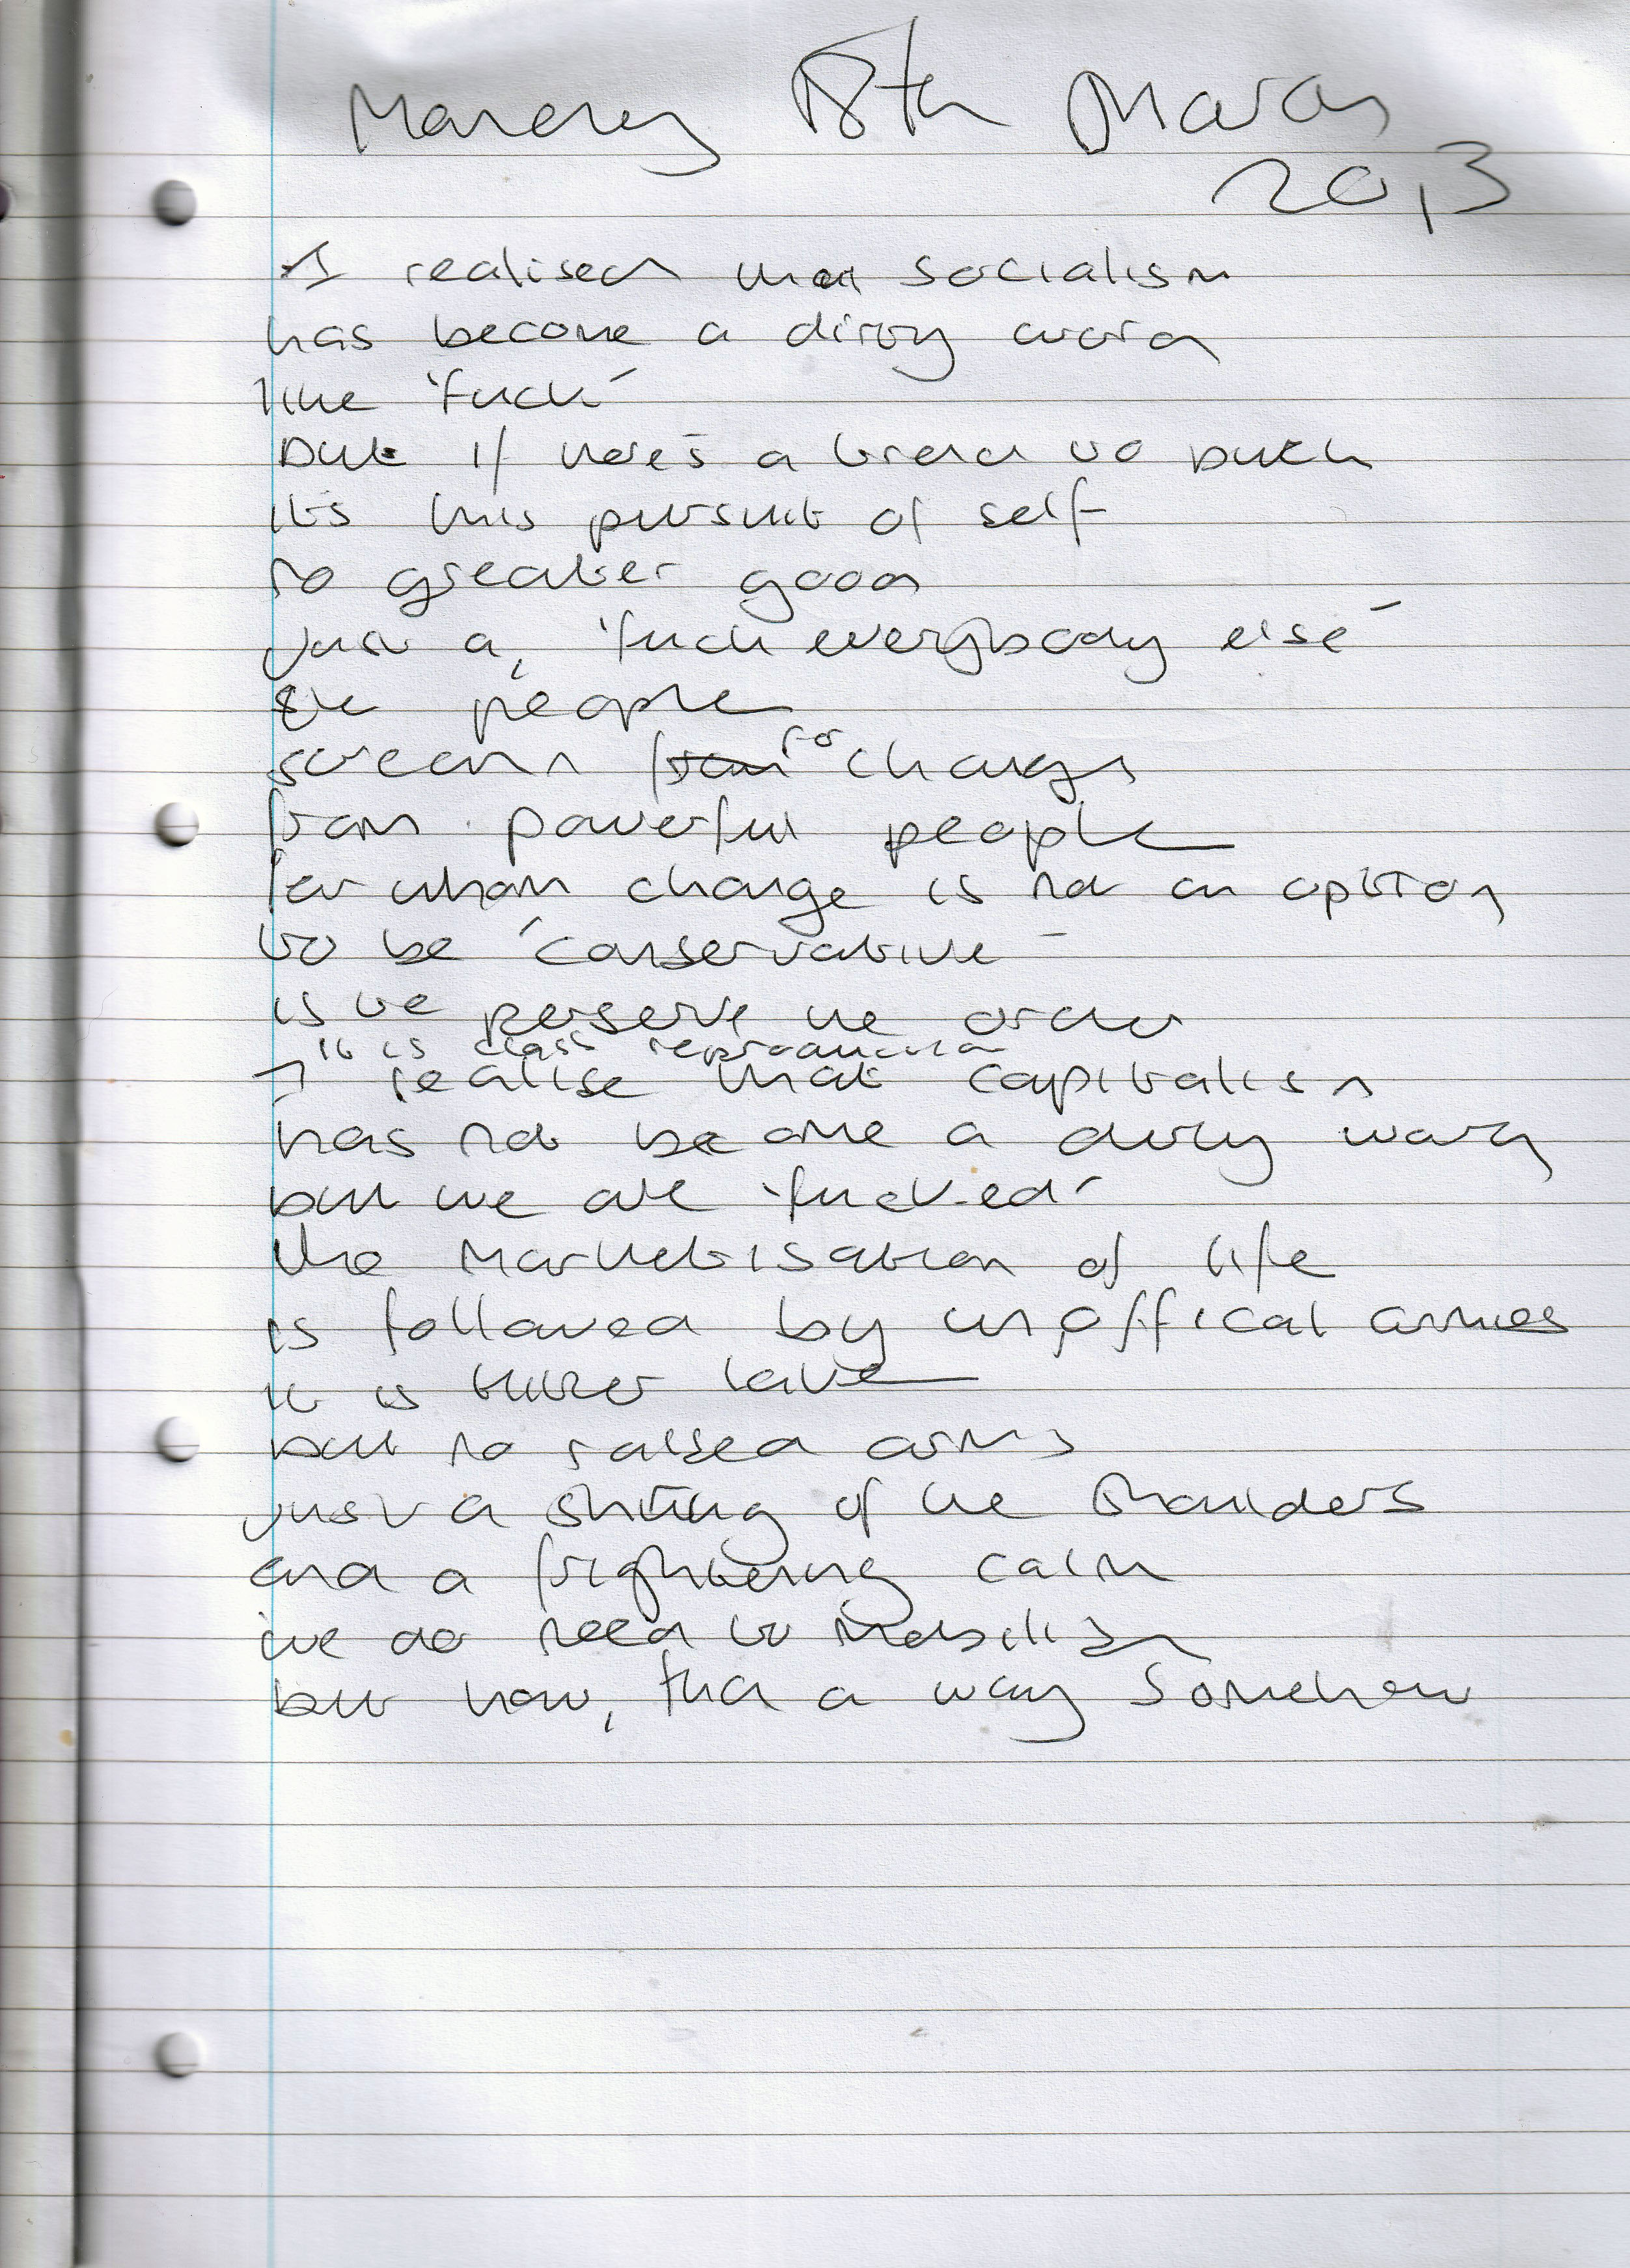 Monday 18th March
2013
I realised that socialism
has become a dirty word
like 'fuck'
But if there's a trend to buck
its this pursuit of self
no greater good
just a, 'fuck everybody else'
the people
scream from for change
from powerful people
for whom change is not an option
to be 'conservative'
is to perserve the order
it is class reproduction
I realise that capitalism
has not become a dirty word
but we are 'fucked'
the marketisation of life
is followed by unoffical armies
it is bitter love
but no raised arms
just a shrug of the shoulders
and a frightening calm
we do need to mobilise
but how, find a way somehow